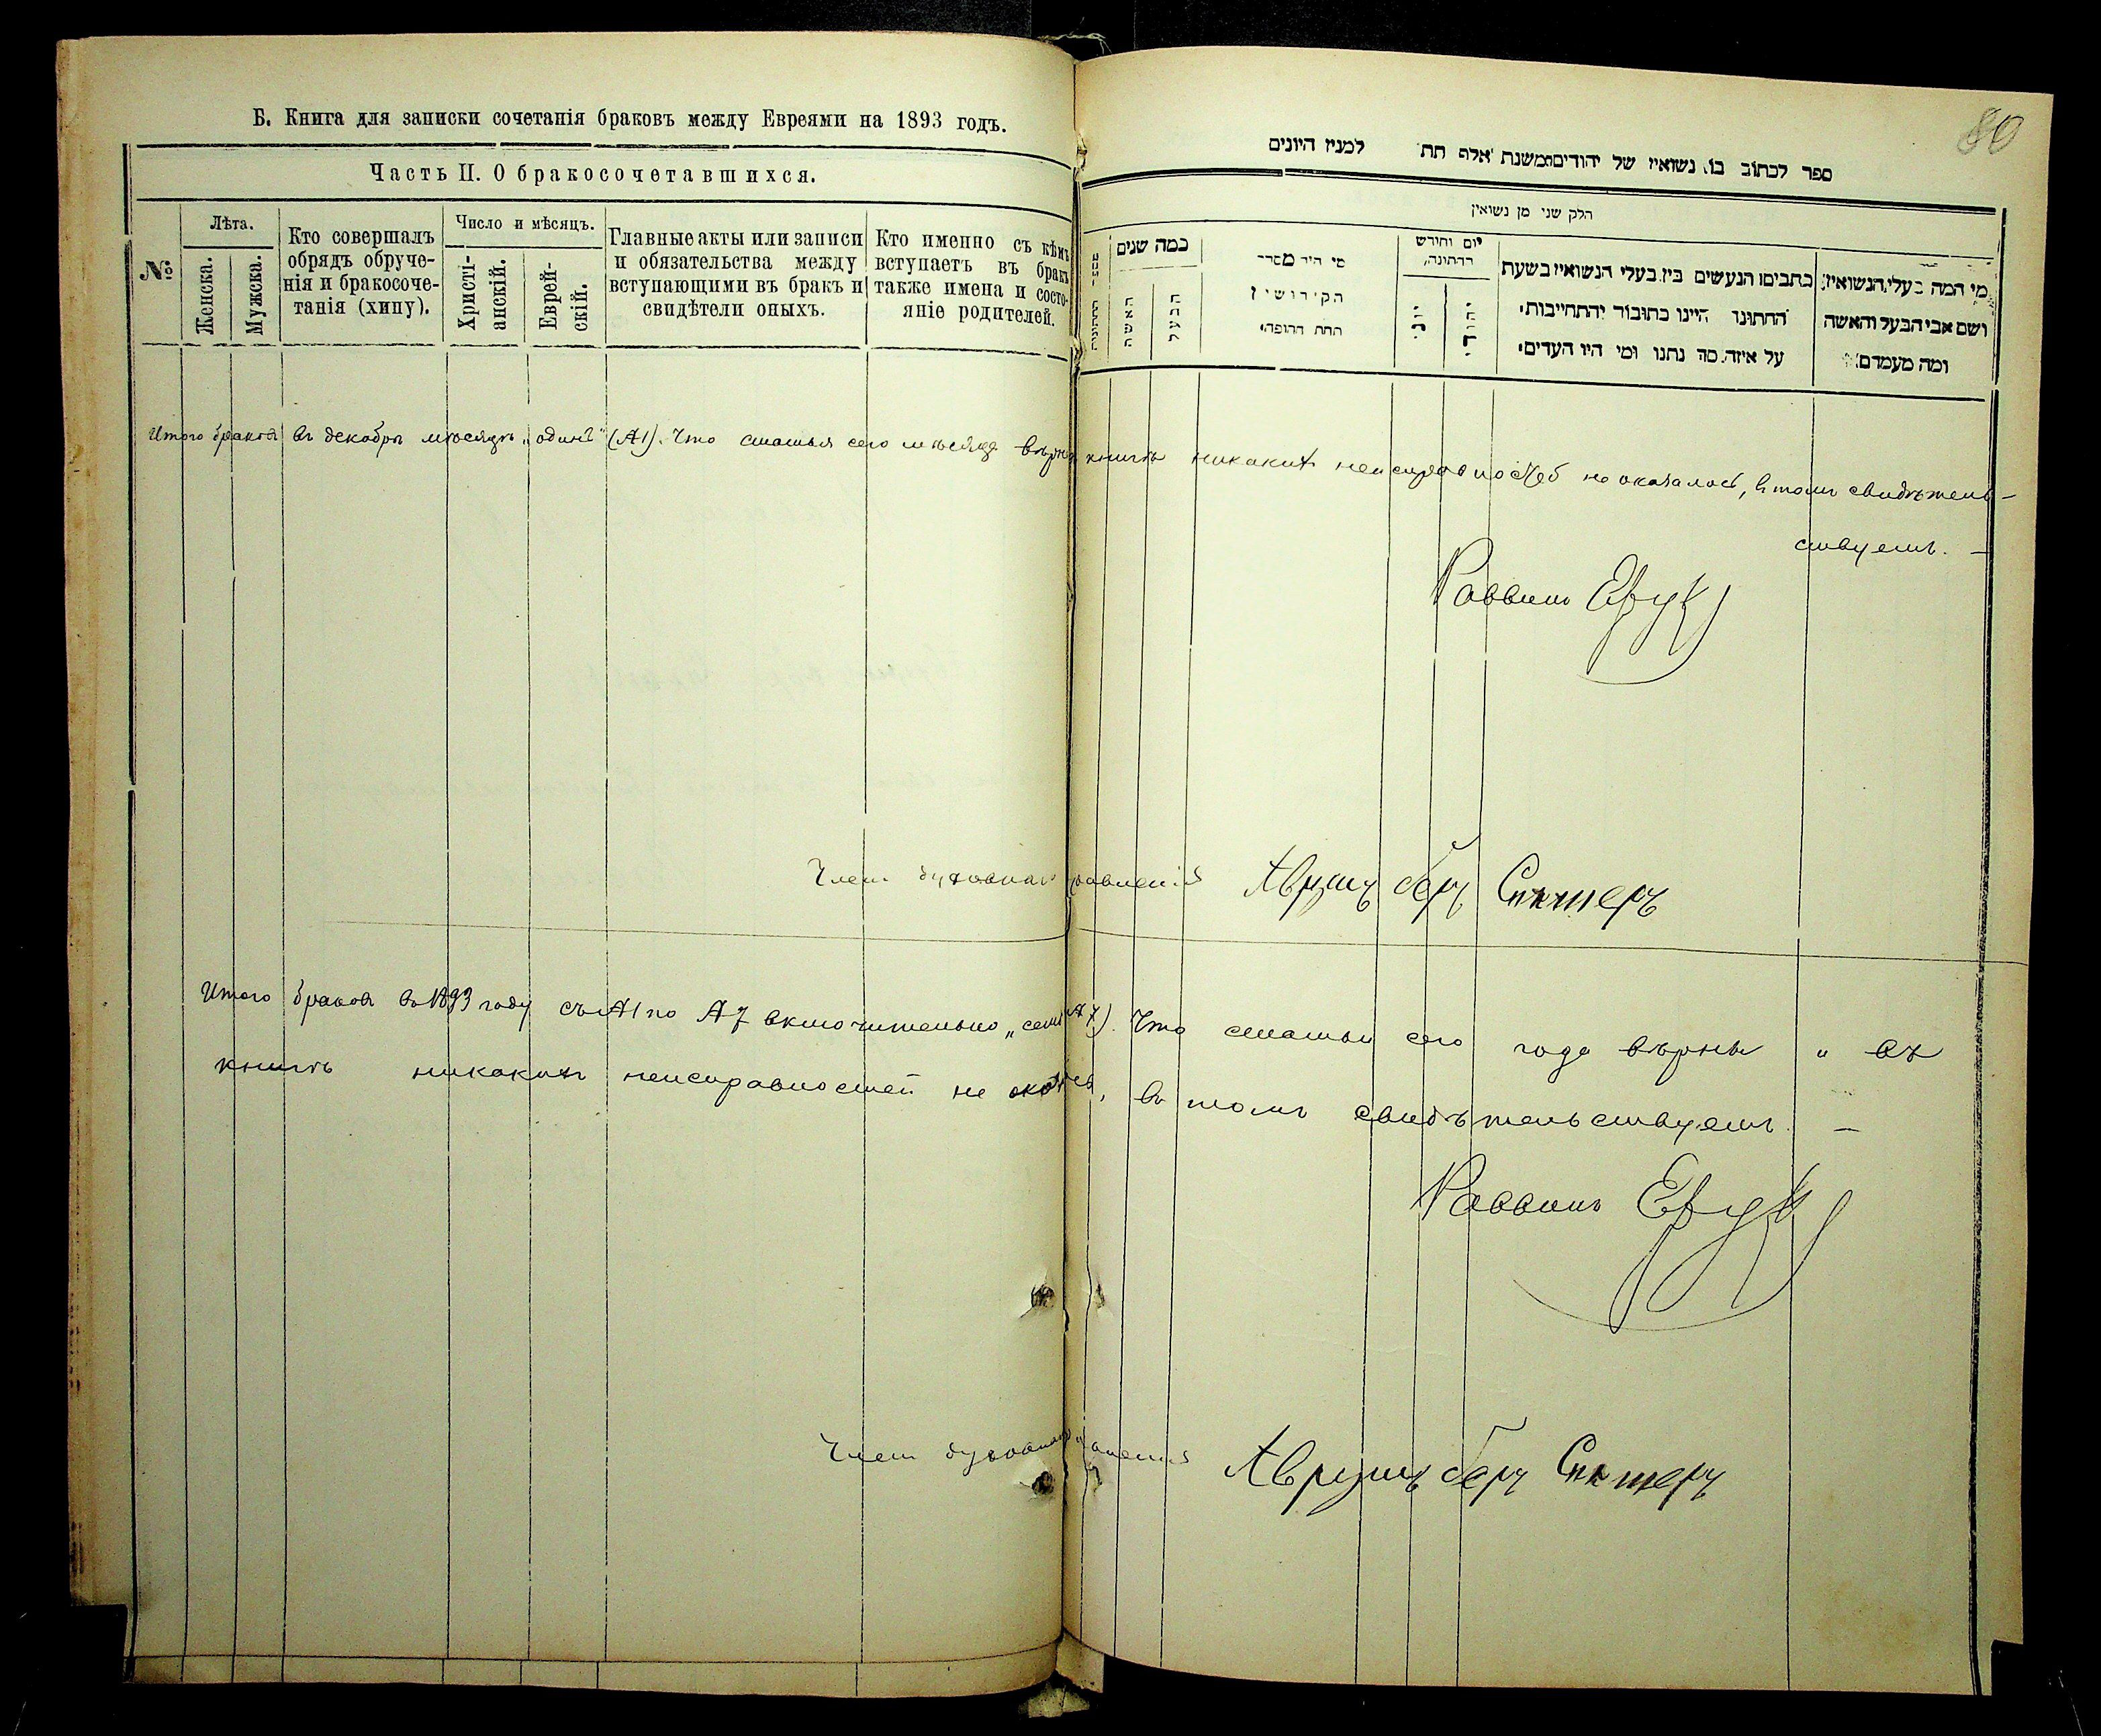 Б. Книга для записки сочетанія браковъ между Евреями на 1893 годъ.
Часть II. О бракосочетавшихся.
№
Лѣта.
Женска.
Мужска.
Кто совершалъ
обрядъ обруче-
нія и бракосоче-
танія (хипу).
Число и мѣсяцъ.
Христі-
анскій.
Еврей-
скій.
Главные акты или записи
и обязательства между
вступающими въ бракъ и
свидѣтели оныхъ.
Кто именно съ кѣмъ
вступаетъ въ бракъ
также имена и состо-
яніе родителей.
80
ספר לכתוב בו נשואין של יהודים משנת אלף תת למנין היונים
חלק שני מן נשואין
כמה שנים
האשה
הבעל
מי היה מסדר
הקידושין
תחת החופה
יום וחודש
החתונה
יוני
יהודי
כתבים הנעשים בין בעלי הנשואין בשעת
החתונה היינו כתובור יהתחייבות
על איזה סך נתנו ומי היו העדים
מי המה בעלי הנשואין
ושם אבי הבעל והאשה
ומה מעמדם
Итого браковъ въ декабрѣ мѣсяцѣ „одинъ“ (№1). Что статья сего мѣсяца вѣрна книгѣ никакихъ неисправностей не оказалось, въ томъ свидѣтель-
ствуемъ. —
Раввинъ
Членъ духовнаго правленія
Итого браковъ въ 1893 году съ №1 по №7 включительно „семь“ №7). Что статьи сего года вѣрны и въ
книгѣ никакихъ неисправностей не оказ, въ томъ свидѣтельствуемъ. —
Раввинъ
Членъ духовнаго правленія